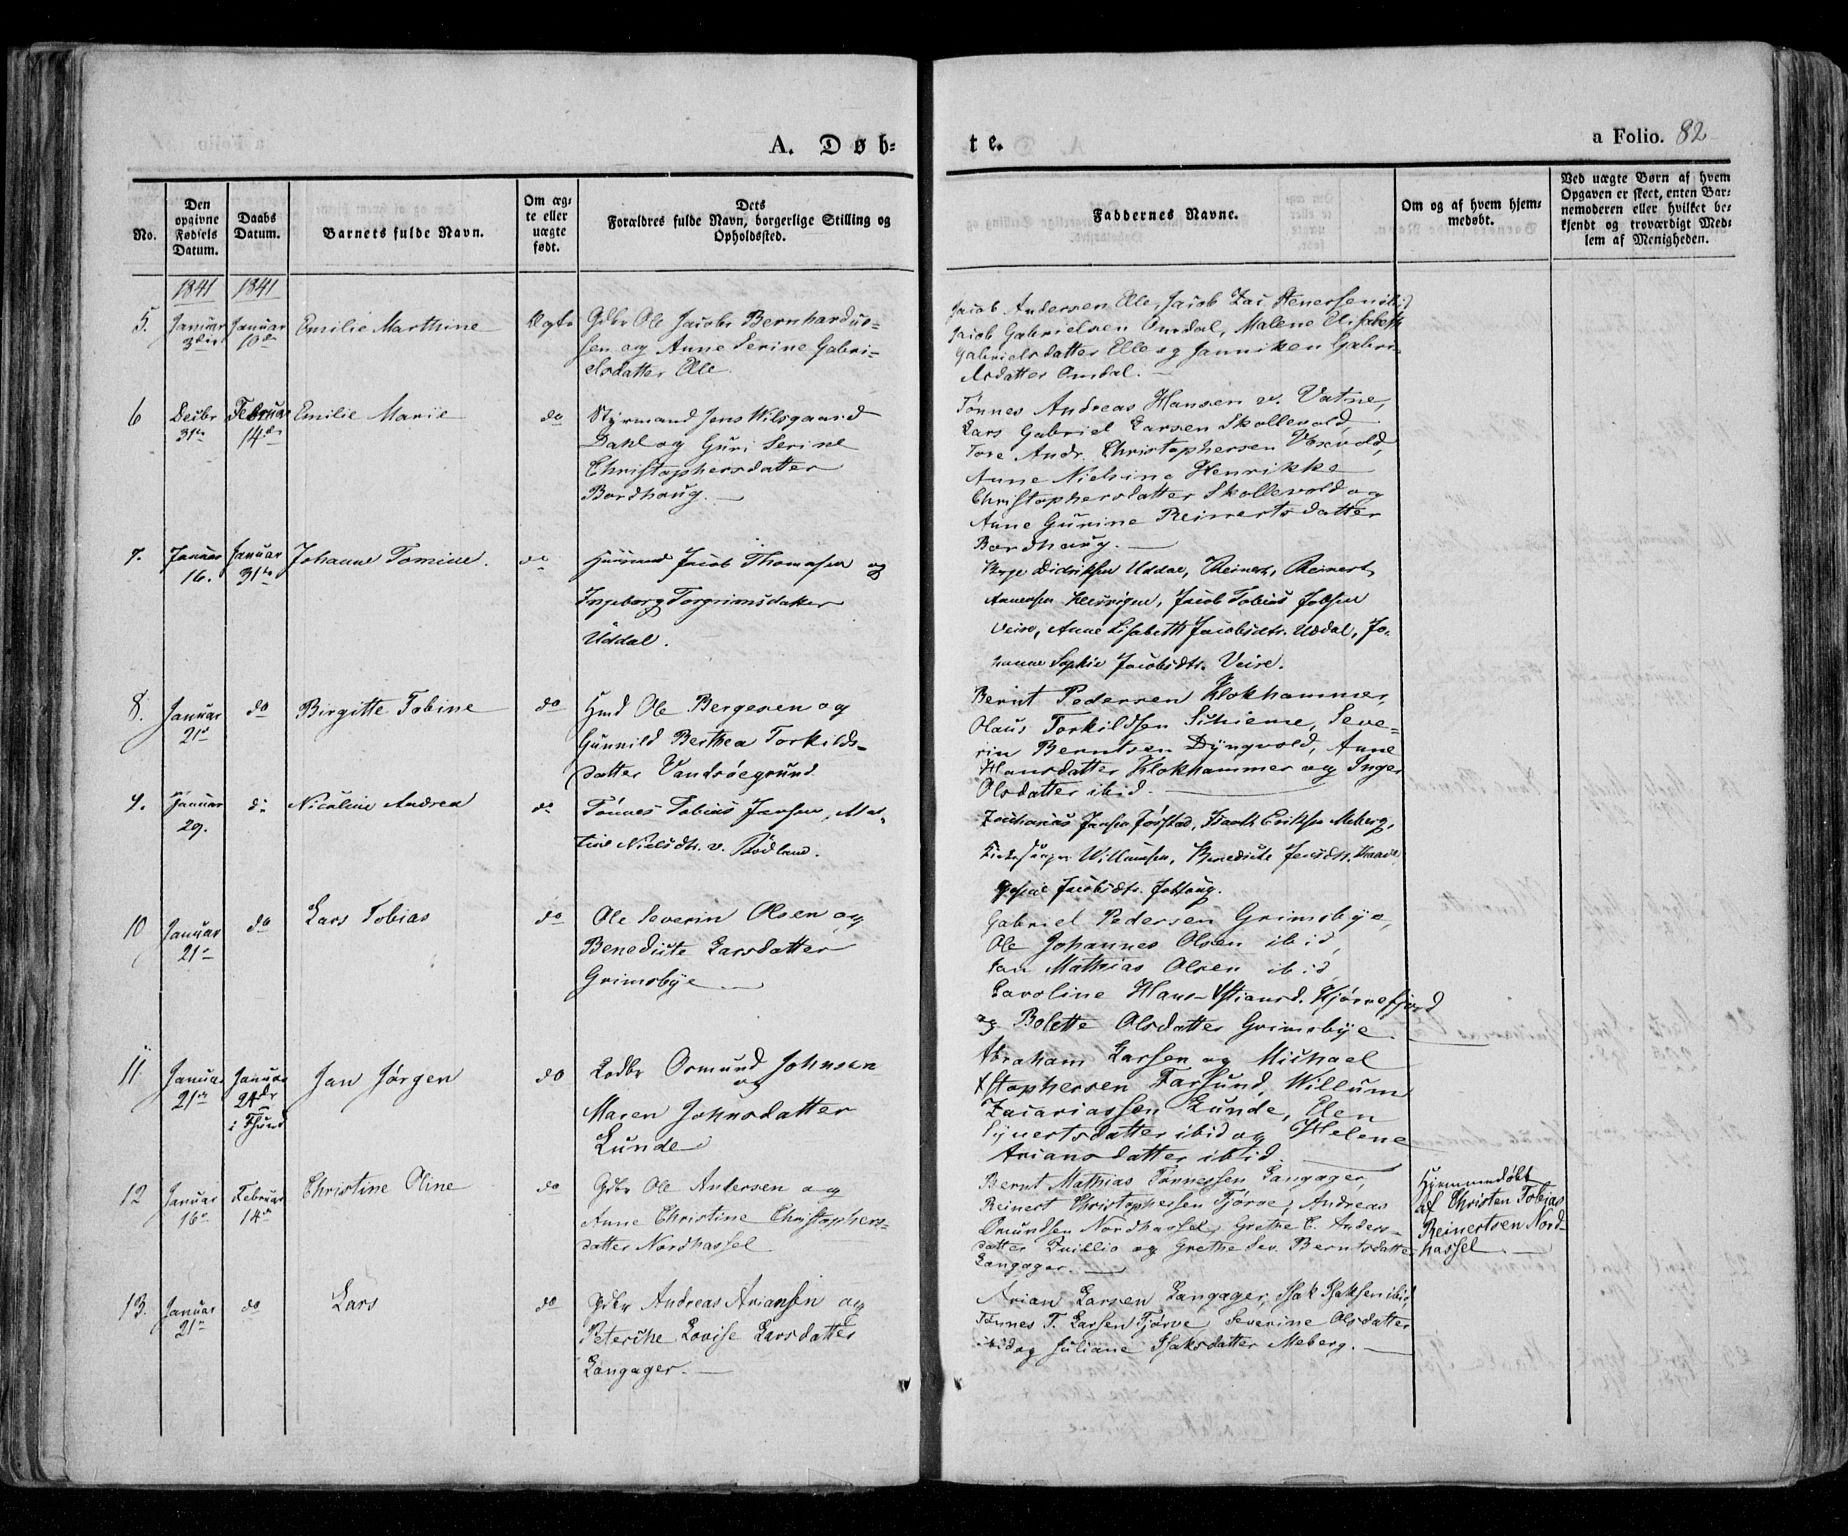 A. Døb-
te.
a Folio. 82
No.
Den
opgivne
Fødsels
Datum.
Daabs
Datum.
Barnets fulde Navn.
Om æg-
te eller
uægte
født.
Dets
Forældres fulde Navn, borgerlige Stilling og
Opholdssted.
Faddernes Navne.
Om og af hvem hjem-
medøbt.
Ved uægte Børn af hvem
Opgaven er skeet, enten Bar-
nemoderen eller hvilket be-
kjendt og troværdigt Med-
lem af Menigheden.
1841 1841
5. Januar 3die
Januar 10de
Emilie Marthine
Ægte
Gdbr Ole Jacobs Bernhardus-
sen og Anne Serine Gabri-
elsdatter Elle
Jacob Andersen Elle, Jacob Zac. Stenersen ibid
Jacob Gabrielsen Omdal, Malene Elisabeth
Gabrielsdatter Elle og Janniken Gabri-
elsdatter Omdal.
6 Decbr 31te
Februar 14de
Emilie Marie
do
Styrmand Jens Wilsgaard
Dahl og Guri Serine
Christophersdatter
Bordhaug.
Tønnes Andreas Hansen v. Vatne,
Lars Gabriel Larsen Skollevold,
Tore Andr. Christophersen Voxvold,
Anne Nielsine Henrikke
Christophersdatter Skollevold og
Anne Gurine Reinertsdatter
Bordhaug.
7. Januar 16.
Januar 31te
Johanne Tomine.
do
Huusmand Jacob Thomassen og
Ingeborg Torgrimsdatter
Uddal.
Didriksen Uddal, Reinert
Jacob Tobias
Veire, Anne Lisabeth Jacobsdtr. Uddal, Jo-
hanne Sophie Jacobsdtr. Veire.
8. Januar 21de
do
Birgitte Tobine
do
Hmd Ole Bergesen og
Gunnild Berthea Torkilds-
datter Vandsøegrund
Bernt Pedersen Klokhammer,
Olaus Torkildsen Schieme, Seve-
rin Berntsen Dyngvold, Anne
Hansdatter Klokhammer og Inger
Olsdatter ibid.
9. Januar 29.
do
Nicoline Andrea
do
Tønnes Tobias Jansen, Mar-
tine Nielsdtr. v. Rødland.
Zacharias Jansen Jørstad, Isach Eriksen Meberg,
Willumsen, Benedicte Jensdtr.
Jacobsdtr.
10 Januar 21de
do
Lars Tobias
do
Ole Severin Olsen og
Benedicte Larsdatter
Grimsbye
Gabriel Pedersen Grimsbye,
Ole Johannes Olsen ibid,
Jan Mathias Olsen ibid
Caroline Hans Xstiansd. Kjørrefjord
og Bolette Olsdatter Grimsbye
11 Januar 21de
Januar 24de
i Fsund
Jan Jørgen
do
Lodbr Osmund Johnsen
og
Maren Johnsdatter
Lunde
Abraham Larsen og Michael
Xstophersen Farsund, Willum
Zacariassen Lunde, Elen
Sÿvertsdatter ibid og Helene
Ariansdatter ibid.
12 Januar 16de
Februar 14de
Christine Oline
do
Gdbr Ole Andersen og
Anne Christine Christophers-
datter Nordhassel
Bernt Mathias Tønnessen Langager,
Reinert Christophersen Tjørve, Andreas
Omundsen Nordhassel, Grethe C. Anders-
datter og Grethe Sev. Berntsdatter
Langager.
Hjemmedøbt
af Christen Tobias
Reinertsen Nord-
hassel.
13. Januar 21de
do
Lars
do
Gdbr Andreas Ariansen og
Peterike Lovise Larsdatter
Langager.
Arian Larsen Langager, Isak Isaksen ibid,
Tønnes T. Larsen Tjørve, Severine Olsdatter
ibid og Juliane Isaksdatter Meberg.